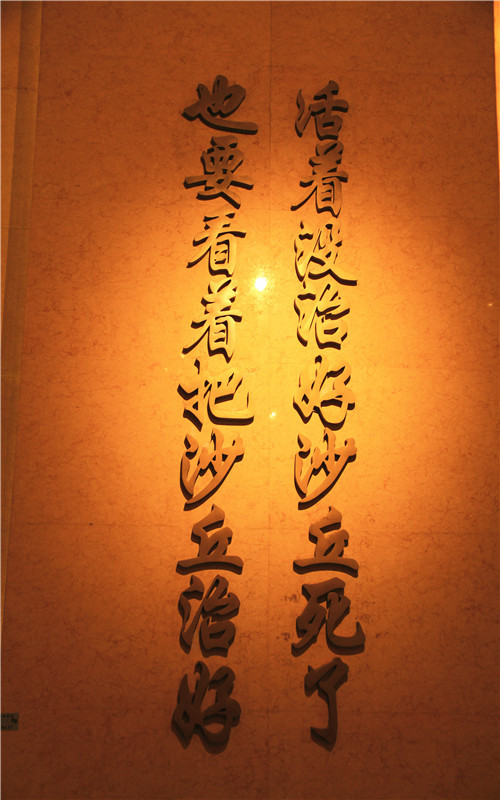 活着没治好沙丘死了
也要看着把沙丘治好